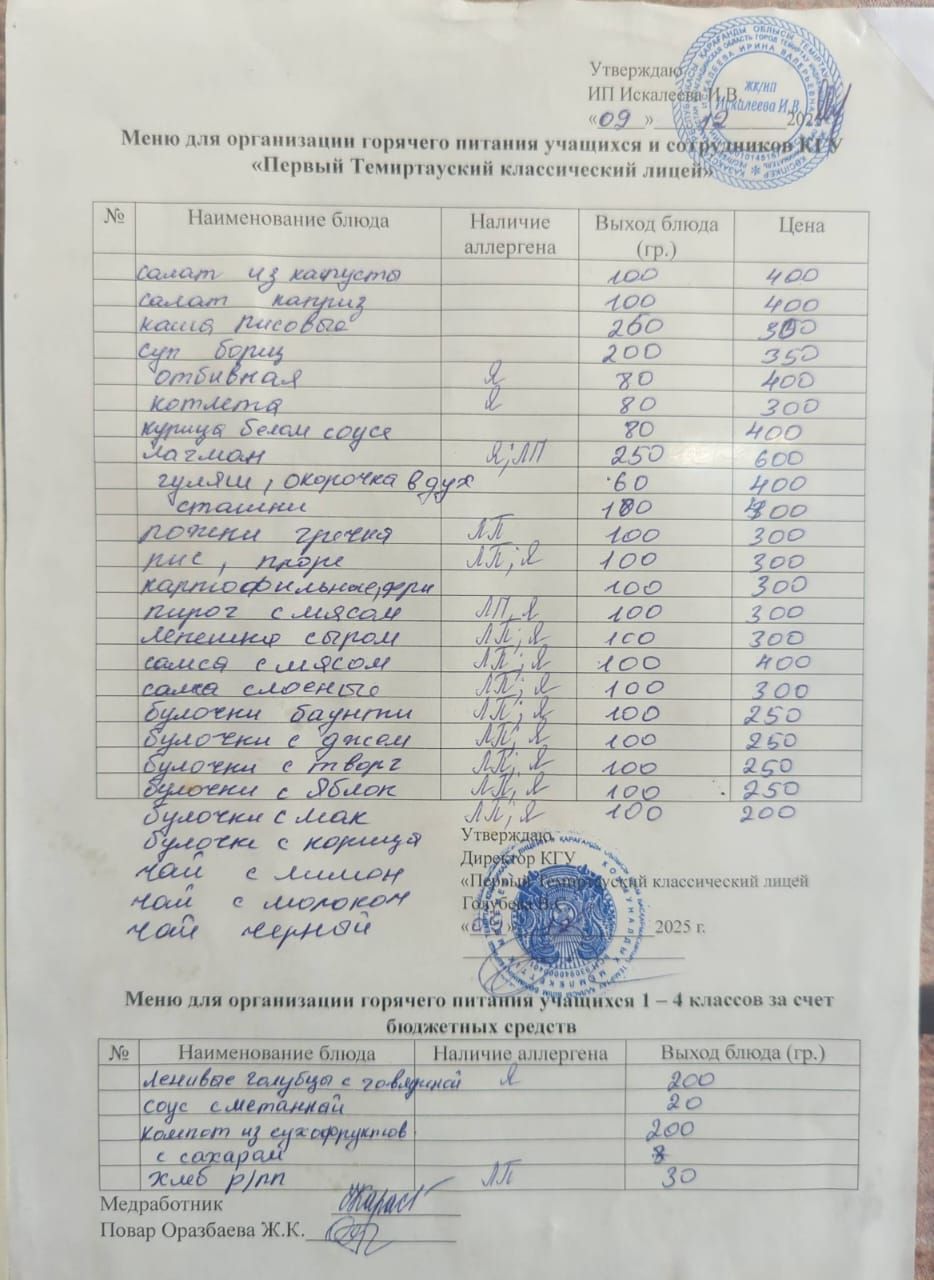 Утверждаю
ИП Искалеева И.В.
ЖК/ИП
Искалеева И.В.
«09» 12 202
Меню для организации горячего питания учащихся и сотрудников КГУ
«Первый Темиртауский классический лицей»
№ Наименование блюда Наличие аллергена Выход блюда (гр.) Цена
салат из капусты 100 400
салат каприз 100 400
каша рисовые 200 300
суп борщ 200 350
отбивная Я 80 400
котлета Я 80 300
курица белом соусе 80 400
лагман Я;ЛП 250 600
гуляш, окорочка в дух 60 400
сташки 100 300
рожки гречка ЛП 100 300
рис, пюре ЛП; Я 100 300
картофильные,фри 100 300
пирог с мясом ЛП, Я 100 300
лепешка сыром ЛП; Я 100 300
самса с мясом ЛП; Я 100 400
самса слоеные ЛП; Я 100 300
булочки баунти ЛП; Я 100 250
булочки с джем ЛП; Я 100 250
булочки с творг ЛП; Я 100 250
булочки с Яблок ЛП, Я 100 250
булочки с мак ЛП; Я 100 200
булочк с корица
чай с лимон
чай с молоком
чай черный
Утверждаю
Директор КГУ
«Первый Темиртауский классический лицей
Голубева
2025 г.
Меню для организации горячего питания учащихся 1 – 4 классов за счет
бюджетных средств
№ Наименование блюда Наличие аллергена Выход блюда (гр.)
Ленивые голубцы с говядиной Я 200
соус сметанный 20
компот из сухофруктов 200
с сахарам
Хлеб р/пп ЛП 30
Медработник
Повар Оразбаева Ж.К.